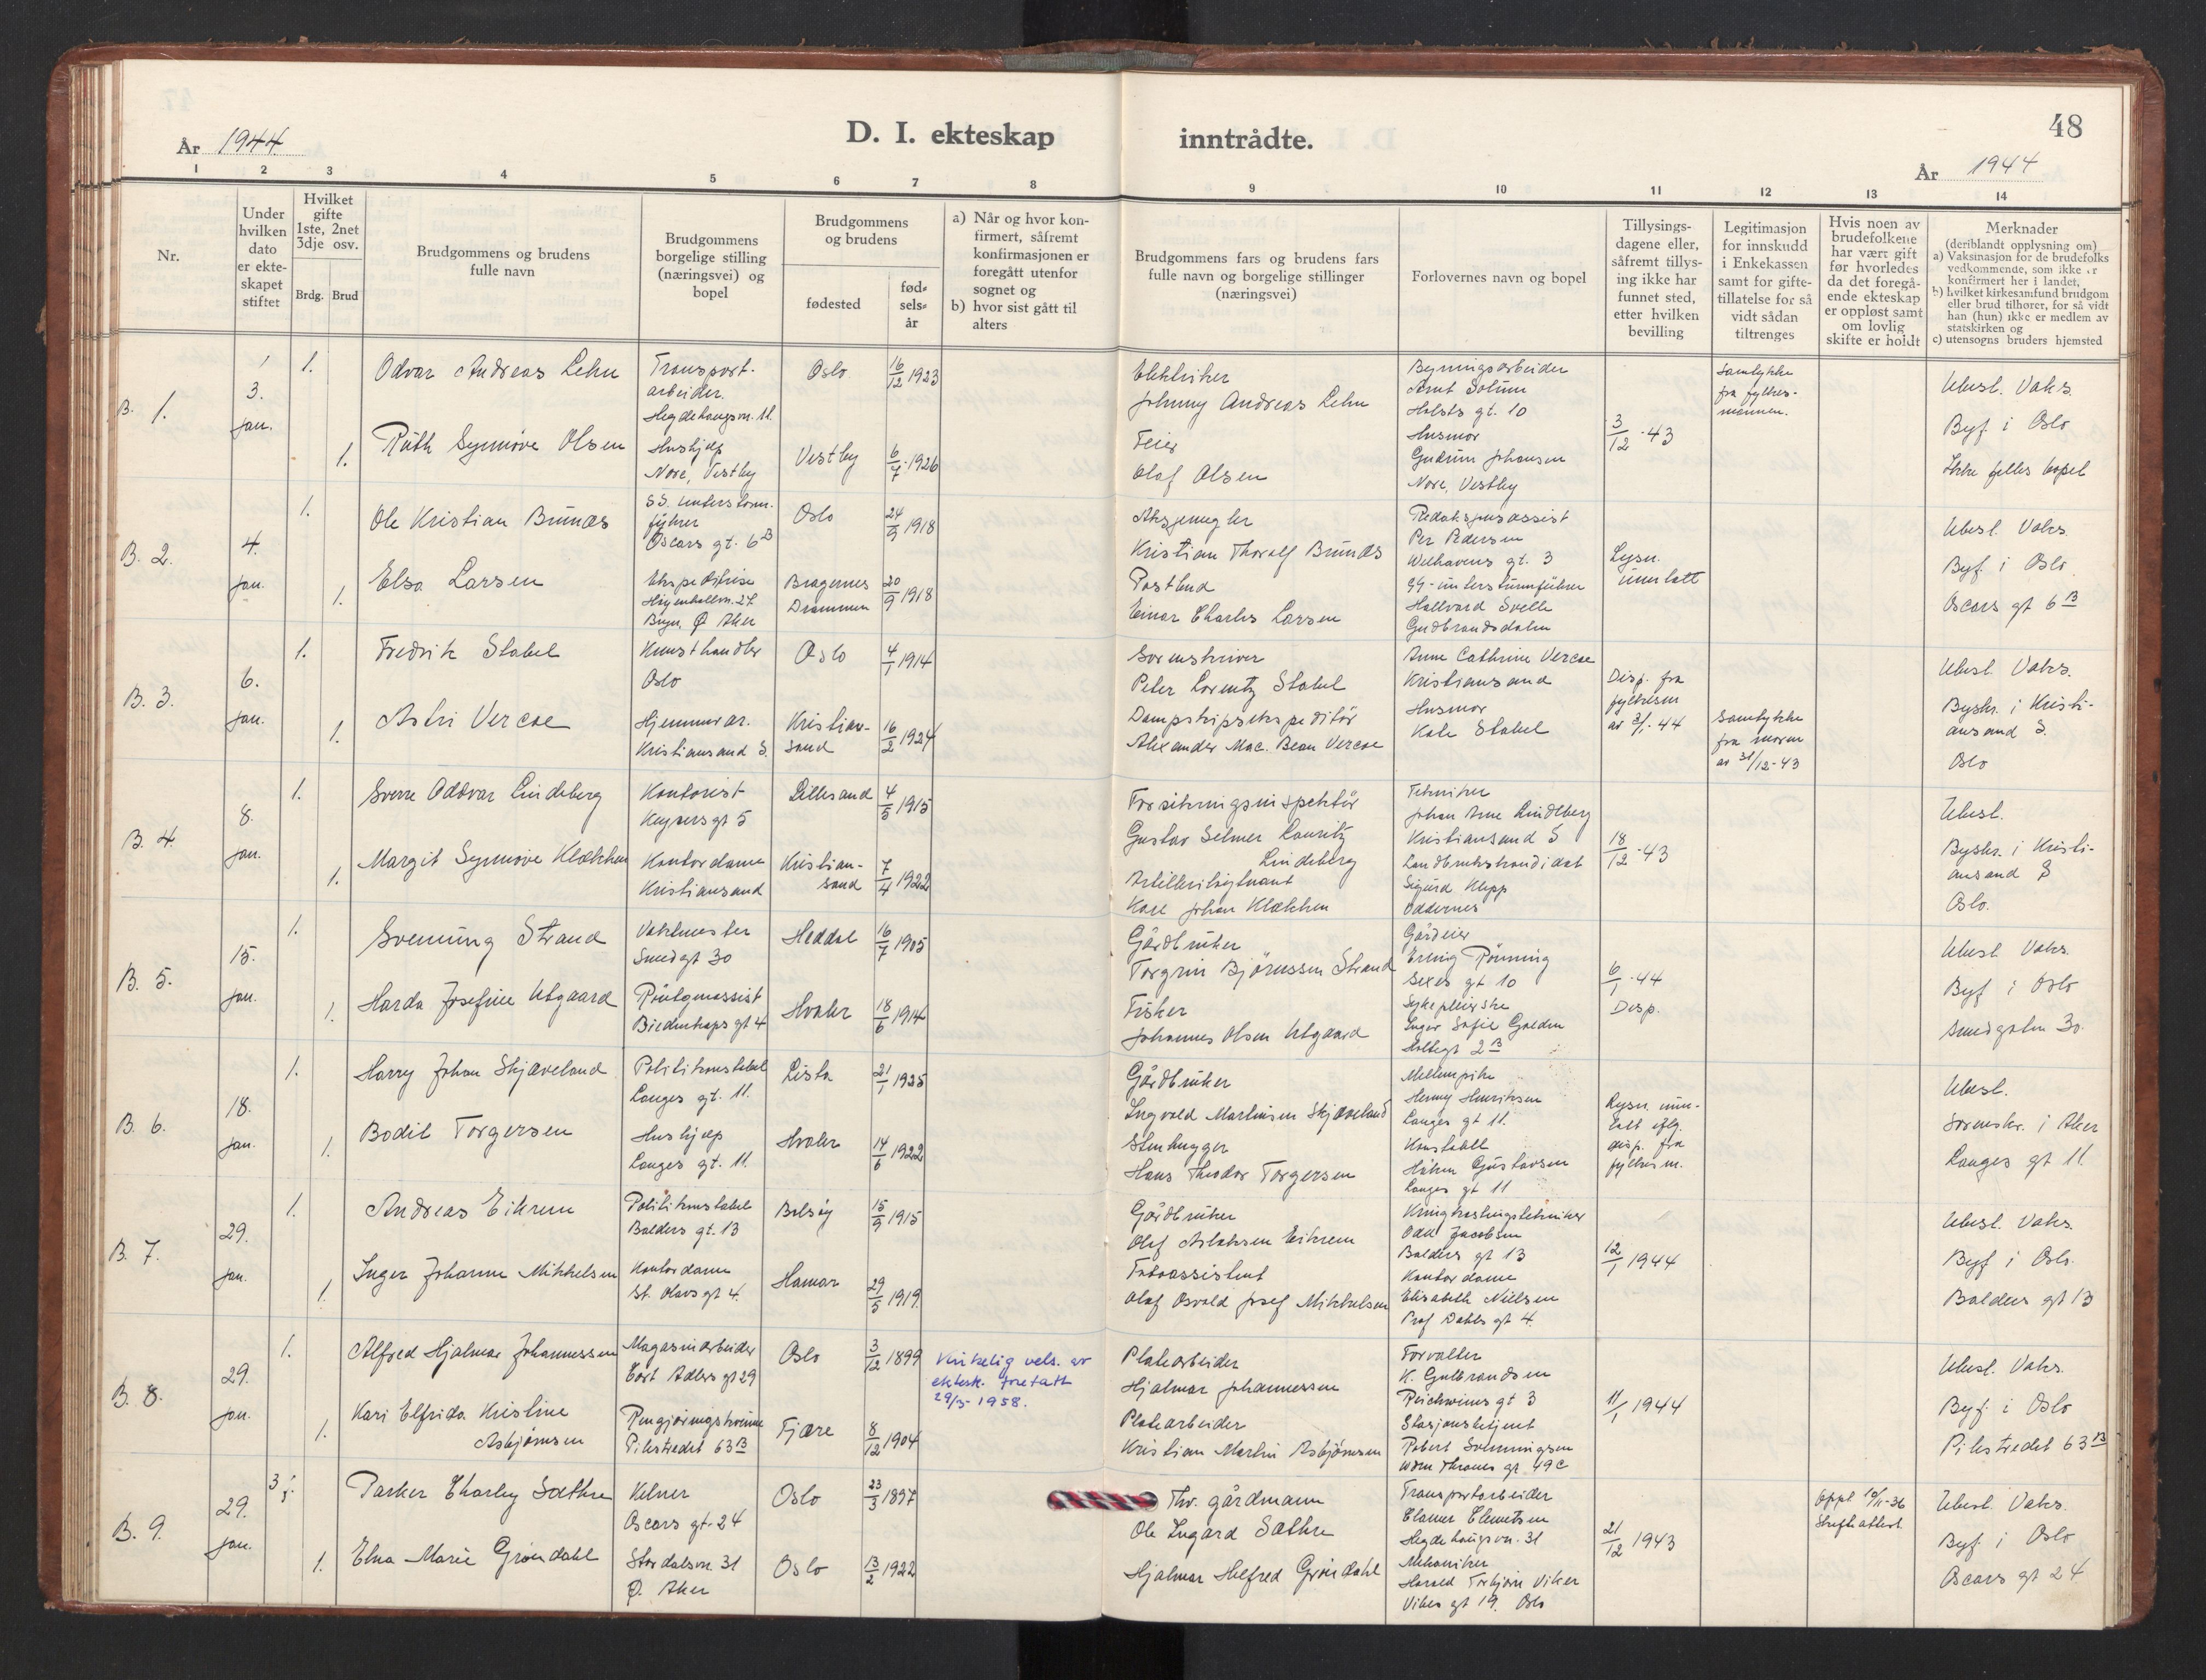 48
D. I. ekteskap inntrådte.
År 1944
År 1944
1 2 3 4 5 6 7 8 9 10 11 12 13 14
Nr.
Under
hvilken
dato
er ekte-
skapet
stiftet
Hvilket
gifte
1ste, 2net
3dje osv.
Brdg. Brud
Brudgommens og brudens
fulle navn
Brudgommens
borgelige stilling
(næringsvei) og
bopel
Brudgommens
og brudens
fødested
fød-
sels-
år
a) Når og hvor kon-
firmert, såfremt
konfirmasjonen er
foregått utenfor
sognet og
b) hvor sist gått til
alters
Brudgommens fars og brudens fars
fulle navn og borgelige stillinger
(næringsvei)
Forlovernes navn og bopel
Tillysings-
dagene eller,
såfremt tillys-
ing ikke har
funnet sted,
etter hvilken
bevilling
Legitimasjon
for innskudd
i Enkekassen
samt for gifte-
tillatelse for så
vidt sådan
tiltrenges
Hvis noen av
brudefolkene
har vært gift
før hvorledes
da det foregå-
ende ekteskap
er oppløst samt
om lovlig
skifte er holdt
Merknader
(deriblandt opplysning om)
a) Vaksinasjon for de brudefolks
vedkommende, som ikke er
konfirmert her i landet,
b) hvilket kirkesamfund brudgom
eller brud tilhører, for så vidt
han (hun) ikke er medlem av
statskirken og
c) utensogns bruders hjemsted
B. 1.
3.
jan.
1.
Odvar Andreas Lehn
Transport-
arbeider.
Hegdehaugsvn. 11.
Oslo
16/12 1923
Elektriker
Johnny Andreas Lehn
Bygningsarbeider
Arnt Solum
Holsts gt. 10
3/12-43
Samtykke
fra fylkes-
mannen.
Ubesl. Vaks.
Byf. i Oslo
Ikke felles bopel
1.
Ruth Synnøve Olsen
Hushjelp
Nore, Vestby
Vestby
6/7-1926
Feier
Olaf Olsen
Husmor
Gudrun Johansen
Nore, Vestby
B. 2.
4.
jan.
1.
Ole Kristian Brunæs
SS. unterstorm.
führer
Oscars gt. 6B
Oslo
24/9 1918
Aksjemegler
Kristian Thoralf Brunæs
Redaksjonsassist
Per Pedersen
Welhavens gt. 3
Lysn.
unnlatt
Ubesl. Vaks.
Byf. i Oslo
Oscars gt 6B
1.
Elsa Larsen
Ekspeditrise
Høyenhallvn. 27
Bryn, Ø. Aker
Bragernes
Drammen
20/9 1918
Postbud
Einar Charles Larsen
SS-untersturmführer
Hallvard Svelle
Gudbrandsdalen
B. 3.
6.
jan.
1.
Fredrik Stabel
Kunsthandler
Oslo
Oslo
4/1 1914
Sorenskriver
Peter Lorentz Stabel
Anne Cathrine Vercoe
Kristiansand
Disp. fra
fylkesm
av 3/1-44
Ubesl. Vaks.
Byskr. i Kristi-
ansand S.
Oslo
1.
Astri Vercoe
Hjemmevær.
Kristiansand S.
Kristian-
sand
16/2 1924
Dampskipsekspeditør
Alexander Mac. Bean Vercoe
Husmor
Kate Stabel
Samtykke
fra moren
av 31/12-43
B. 4.
8.
jan.
1.
Sverre Oddvar Lindeberg
Kontorist
Keysers gt 5
Lillesand
4/5 1915
Forsikringsinspektør
Gustav Selmer Lauritz
Lindeberg
Tekniker
Johan Arne Lindeberg
Kristiansand S
18/12-43
Ubesl.
Byskr. i Kristi-
ansand S
Oslo.
1.
Margit Synnøve Klækken
Kontordame
Kristiansand
Kristian-
sand
7/4 1922
Artilleriløytnant
Kaxe Johan Klækken
Landbrukskandidat
Sigurd Klepp
Oddernes
B. 5.
15.
jan.
1.
Svenung Strand
Vaktmester
Smedgt 30
Heddal
16/7 1905
Gårdbruker
Torgrim Bjørnssen Strand
Gårdeier
Erling Rønning
Sexes gt 10
6/1-44
Disp.
Ubesl. Vaks.
Byf i Oslo
Smedgaten 30.
1.
Harda Josefine Utgaard
Røntgenassist
Vidensk​aps gt 4
Hvaler
18/6 1914
Fisker
Johannes Olsen Utgaard
Sykepleierske
Inger Sofie Golden
Holtegt 2B
B. 6.
18.
jan.
1.
Harry Johan Skjæveland
Politikonstabel
Langes gt. 11.
Lista
21/1 1925
Gårdbruker
Ingvald Martinsen Skjæveland
Mellompike
Henny Henriksen
Langes gt 11.
Lysn. unn-
latt iflg.
disp. fra
fylkesm.
Ubesl.
Sorenskr. i Aker
Langes gt 11.
1.
Bodil Torgersen
Hushjelp
Langes gt. 11.
Hvaler
14/6 1922
Stenhugger
Hans Theodor Torgersen
Konstabel
Håkon Gustavsen
Langes gt 11
B. 7.
29.
jan.
1.
Andreas Eikrem
Politikonstabel
Balders gt. 13
Bolsøy
15/9 1915
Gårdbruker
Olaf Aslaksen Eikrem
Kringkastingstekniker
Odd Jacobsen
Balders gt 13
12/1 1944
Ubesl. Vaks.
Byf i Oslo.
Balders gt 13
1.
Inger Johanne Mikkelsen
Kontordame
St. Olavs gt 4.
Hamar
29/5 1919.
Fotoassistent
Olaf Osvald Josef Mikkelsen
Kontordame
Elisabeth Nielsen
Prof Dahls gt 4.
B. 8.
29.
jan.
1.
Alfred Hjalmar Johannessen
Magasinarbeider
Cort Adlers gt 29
Oslo
3/12 1899
Kirkelig vels. av
ektesk. foretatt
29/5-1958.
Platearbeider
Hjalmar Johannessen
Forvalter
K. Gulbrandsen
Reichweins gt 3
11/1 1944
Ubesl. Vaks.
Byf. i Oslo
Pilestredet 63B
1.
Kari Elfrida Kristine
Asbjørnsen
Rengjøringskvinne
Pilestredet 63B
Fjære
8/12 1904
Platearbeider
Kristian Martin Asbjørnsen
Stasjonsbetjent
Robert Salomonsen
Wdm Thranes gt 49c
B. 9.
29.
jan.
3
Parker Charley Sæthre
Kelner
Oscars gt. 24
Oslo
23/3 1897
Thv. gårdmann
Ole Ingard Sæthre
Transportarbeider
Elamer Clemetsen
Hegdehaugsvn. 31
21/12 1943
Oppl. 10/11-36
Skifteattest.
Ubesl. Vaks.
Byf i Oslo
Oscars gt 24
1.
Elna Marie Grøndahl
Stordalsvn 31
Ø. Aker
Oslo
13/2 1922
Hjalmar Helfred Grøndahl
Mekaniker
Harald Torbjørn Viker
Vibes gt 19. Oslo